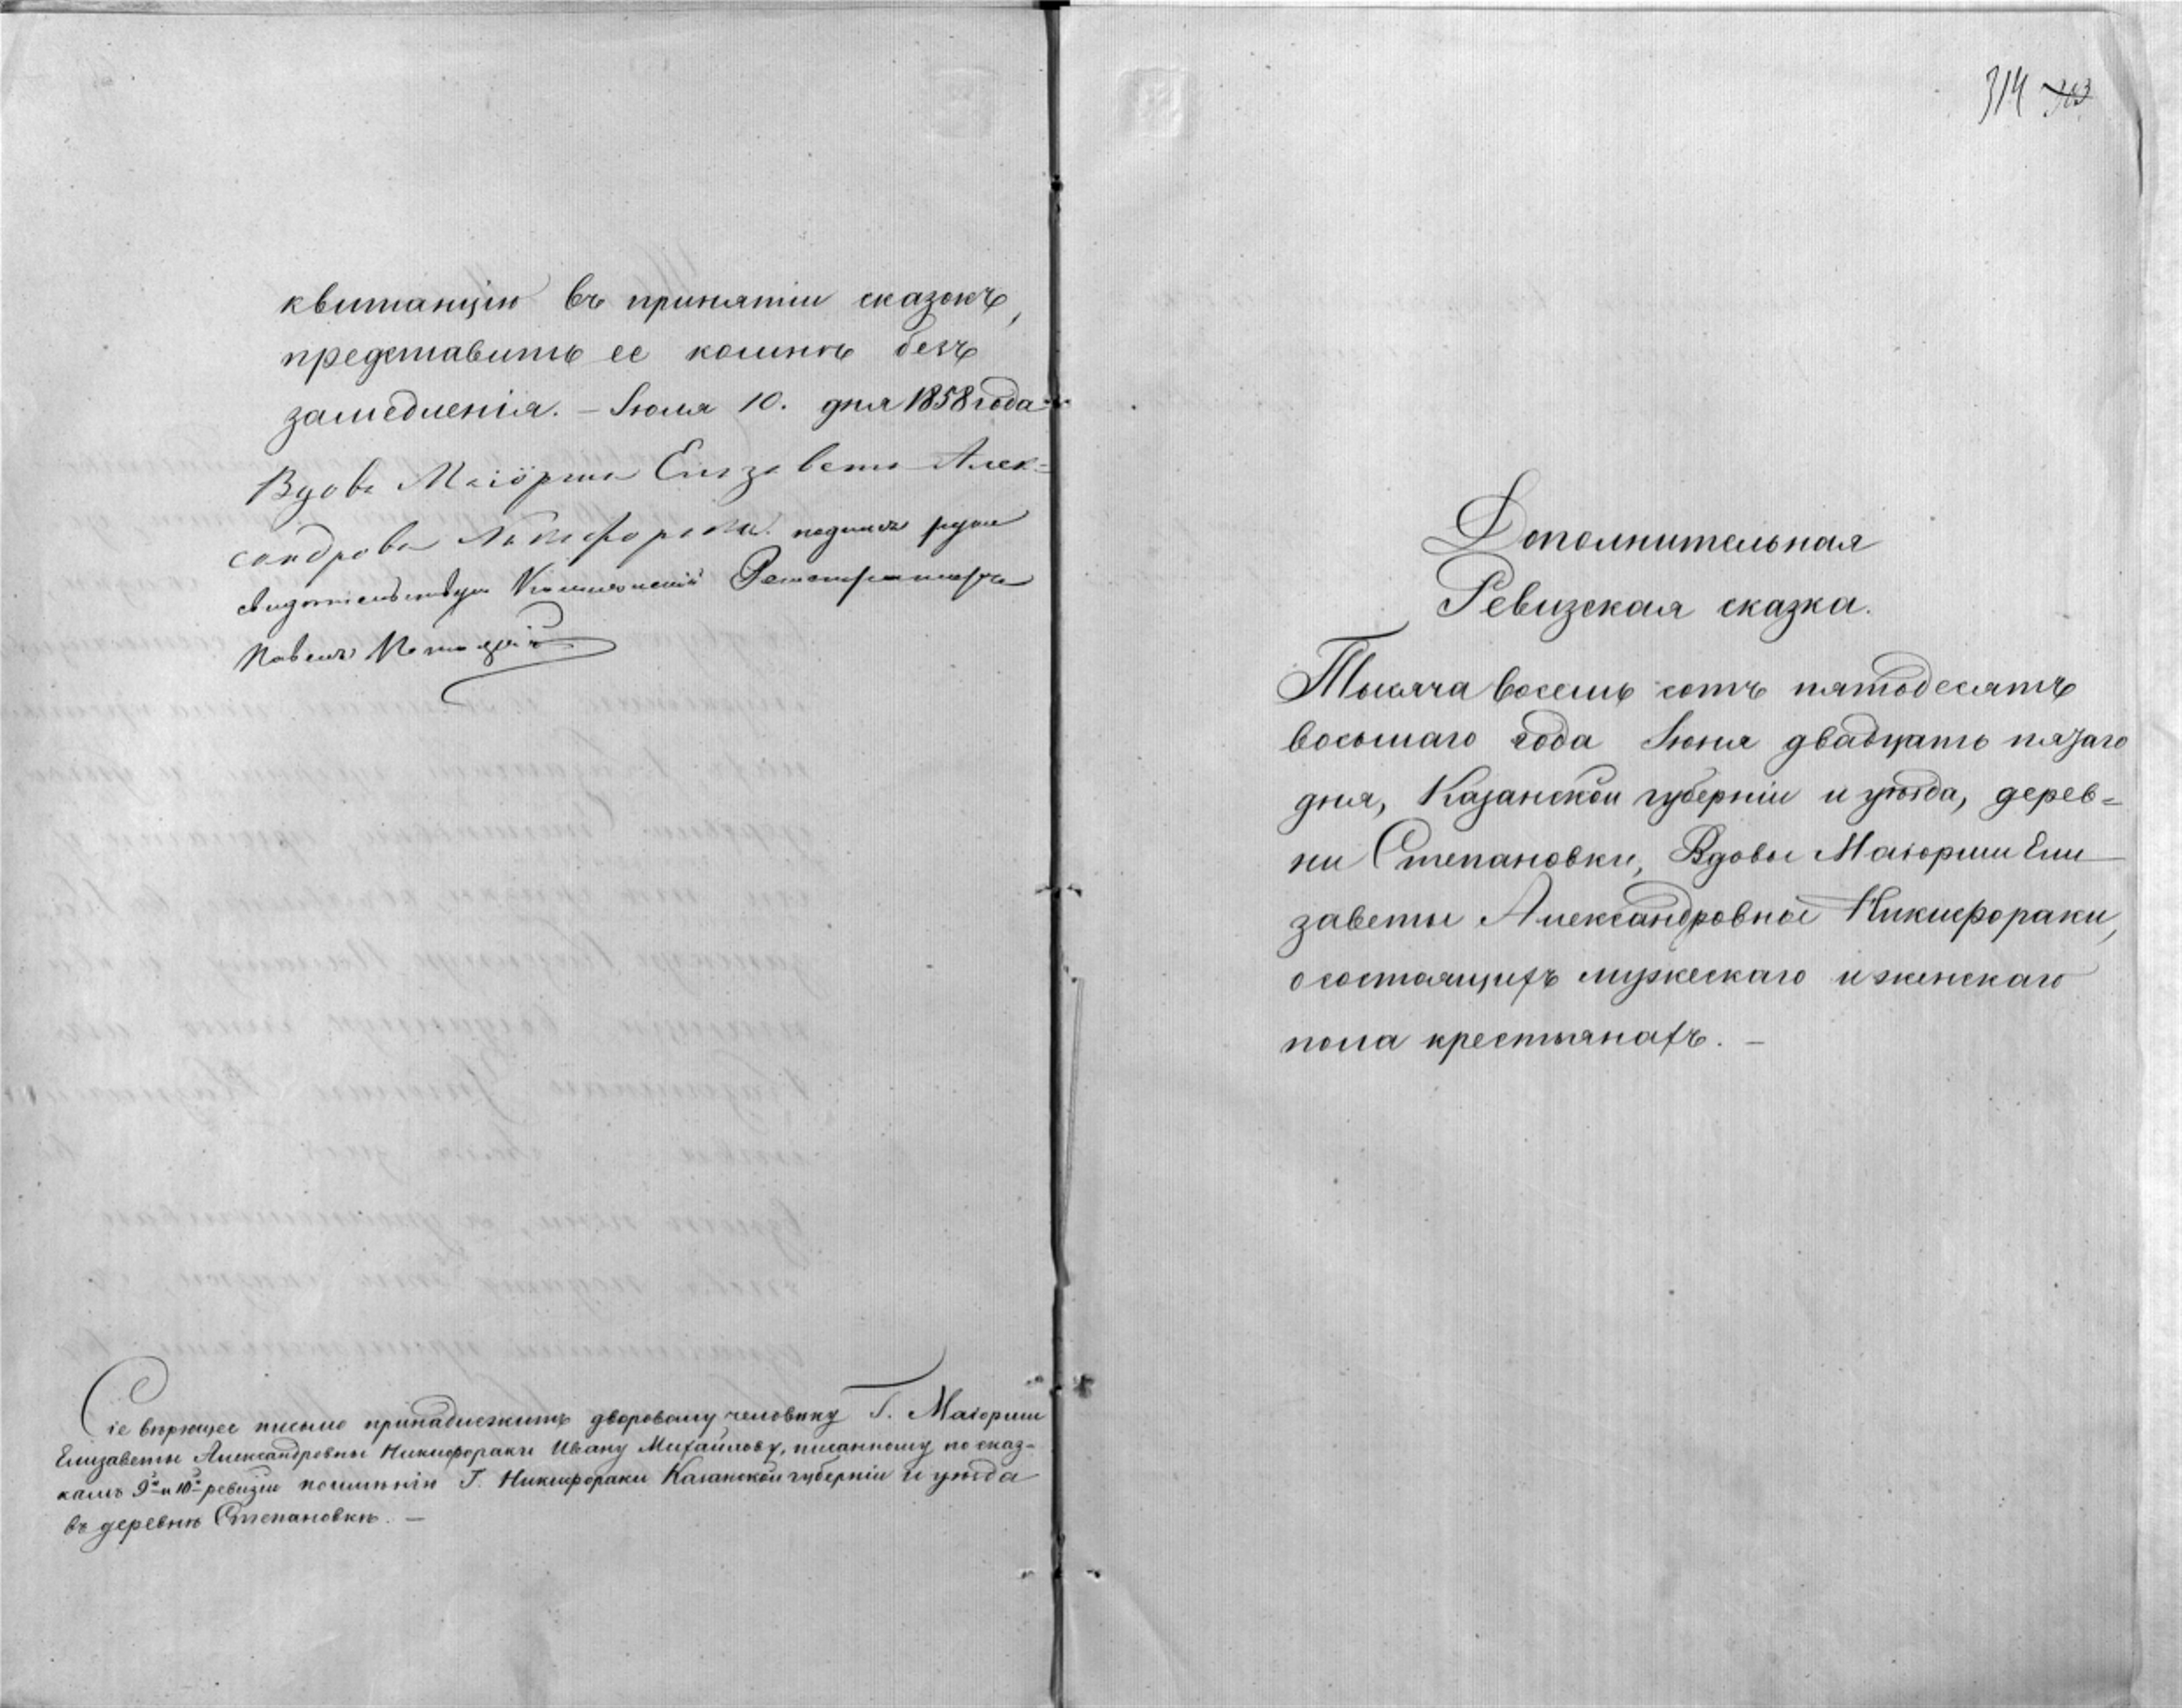 квитанцію въ принятіи сказокъ,
представить ее комнѣ безъ
замедленія. – Іюля 10. дня 1858 года
Вдова Маіорша Елизавета Алек=
сандрова Никифораки. подпись руки
свидетельствую Регистраторъ
Павелъ
Сіе вѣрющее письмо принадлежитъ дворовому человѣку Г. Маіорши
Елизаветы Александровны Никифораки Ивану Михайлову, писанному по сказ-
камъ 9й и 10й ревизіи поимѣнію Г. Никифораки Казанской губерніи и уѣзда
въ деревнѣ Степановкѣ. –
314 313
Дополнительная
Ревизская сказка.
Тысяча восемь сотъ пятодесятъ
восьмаго года Іюня двадцать пятаго
дня, Казанской губерніи и уѣзда, дерев=
ни Степановки, Вдовы Маіорши Ели
заветы Александровны Никифораки,
о состоящихъ мужескаго и женскаго
пола крестьянахъ. –